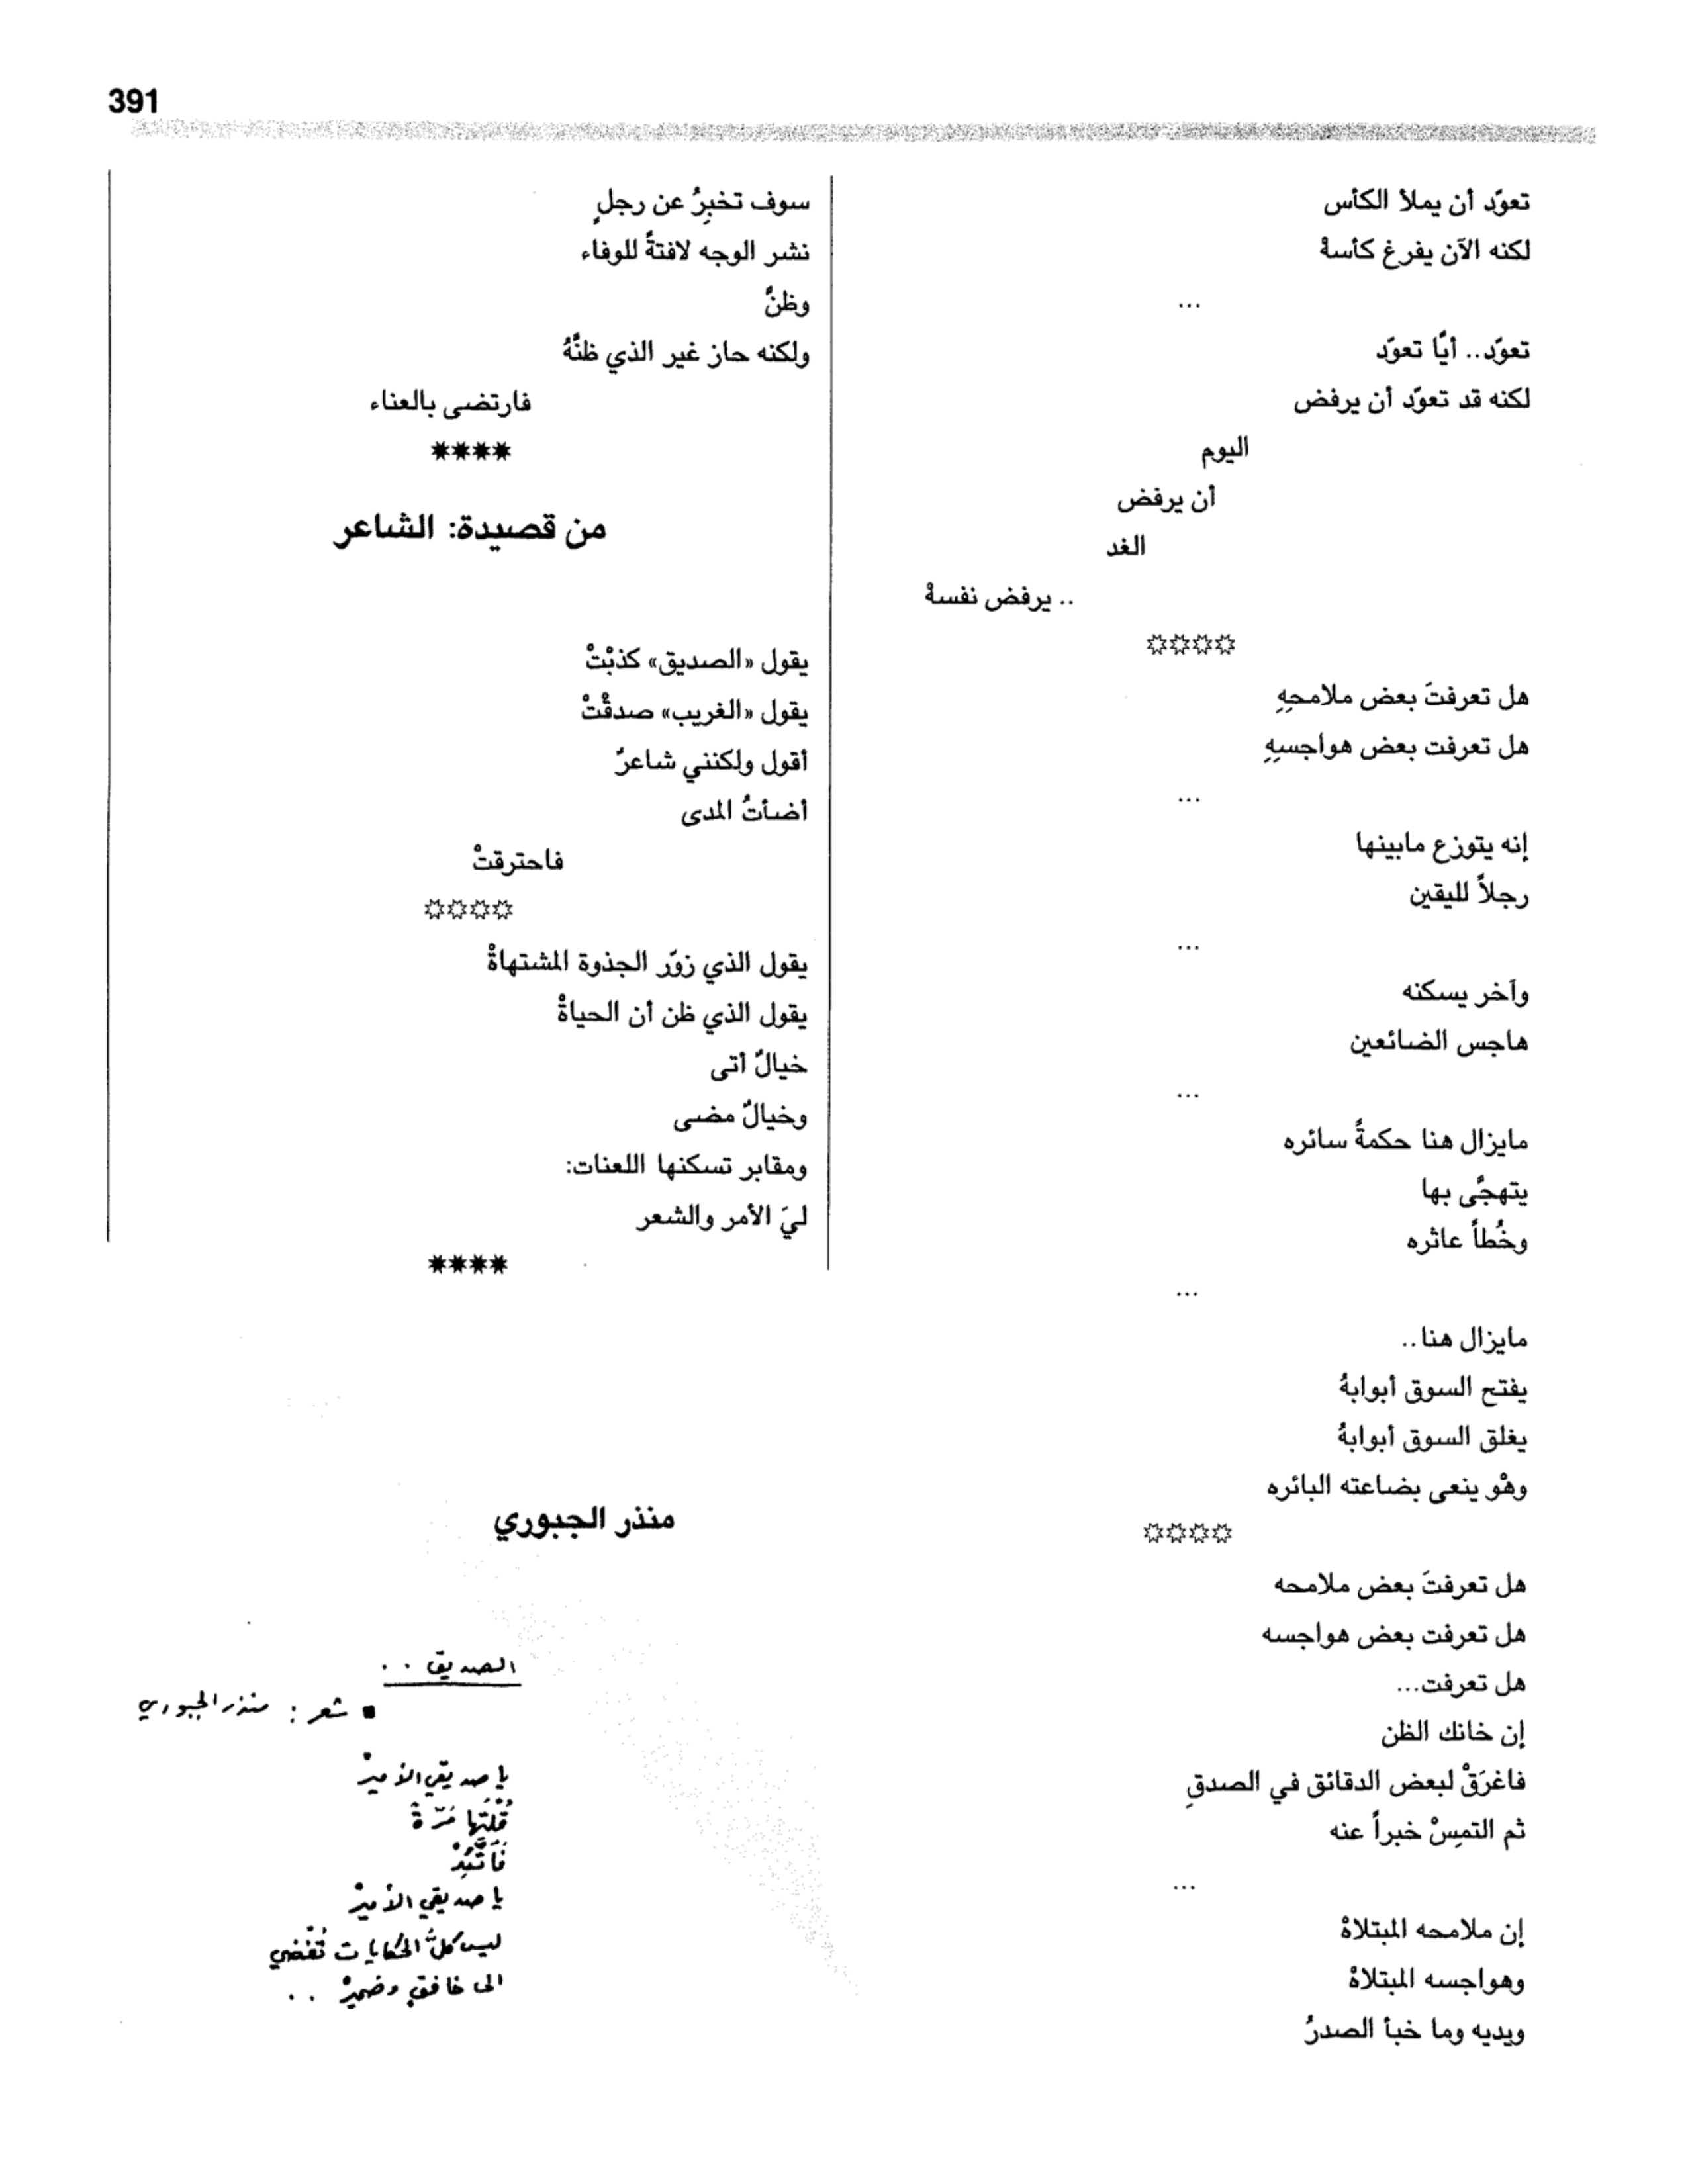 391
تعوّد أن يملأ الكأس
لكنه الآن يفرغ كأسهْ
...
تعوّد.. أيًا تعوّد
لكنه قد تعوّد أن يرفض
اليوم
أن يرفض
الغد
.. يرفض نفسهْ
✩✩✩✩
هل تعرفتَ بعض ملامحِهِ
هل تعرفت بعض هواجسِهِ
...
إنه يتوزع مابينها
رجلاً لليقين
...
وآخر يسكنه
هاجس الضائعين
...
مايزال هنا حكمةً سائره
يتهجّى بها
وخُطاً عاثره
...
مايزال هنا..
يفتح السوق أبوابهُ
يغلق السوق أبوابهُ
وهْو ينعى بضاعته البائره
✩✩✩✩
هل تعرفتَ بعض ملامحه
هل تعرفت بعض هواجسه
هل تعرفت...
إن خانك الظن
فاغرَقْ لبعض الدقائق في الصدقِ
ثم التمِسْ خبراً عنه
...
إن ملامحه المبتلاهْ
وهواجسه المبتلاهْ
ويديه وما خبأ الصدرُ
سوف تخبِرُ عن رجلٍ
نشر الوجه لافتةً للوفاء
وظنَّ
ولكنه حاز غير الذي ظنَّهُ
فارتضى بالعناء
✷✷✷✷
من قصيدة: الشاعر
يقول «الصديق» كذبْتْ
يقول «الغريب» صدقْتْ
أقول ولكنني شاعرٌ
أضأتُ المدى
فاحترقتْ
✩✩✩✩
يقول الذي زوّر الجذوة المشتهاةْ
يقول الذي ظن أن الحياةْ
خيالٌ أتى
وخيالٌ مضى
ومقابر تسكنها اللعنات:
ليَ الأمر والشعر
✷✷✷✷
منذر الجبوري
الصديق ..
▪ شعر : منذر الجبوري
يا صديقي الأميرْ
قُلْتَها مَرّةً
فَاتَّئِدْ
يا صديقي الأميرْ
ليس كلُّ الحكايات تُفْضي
الى خافقٍ وضميرْ ..